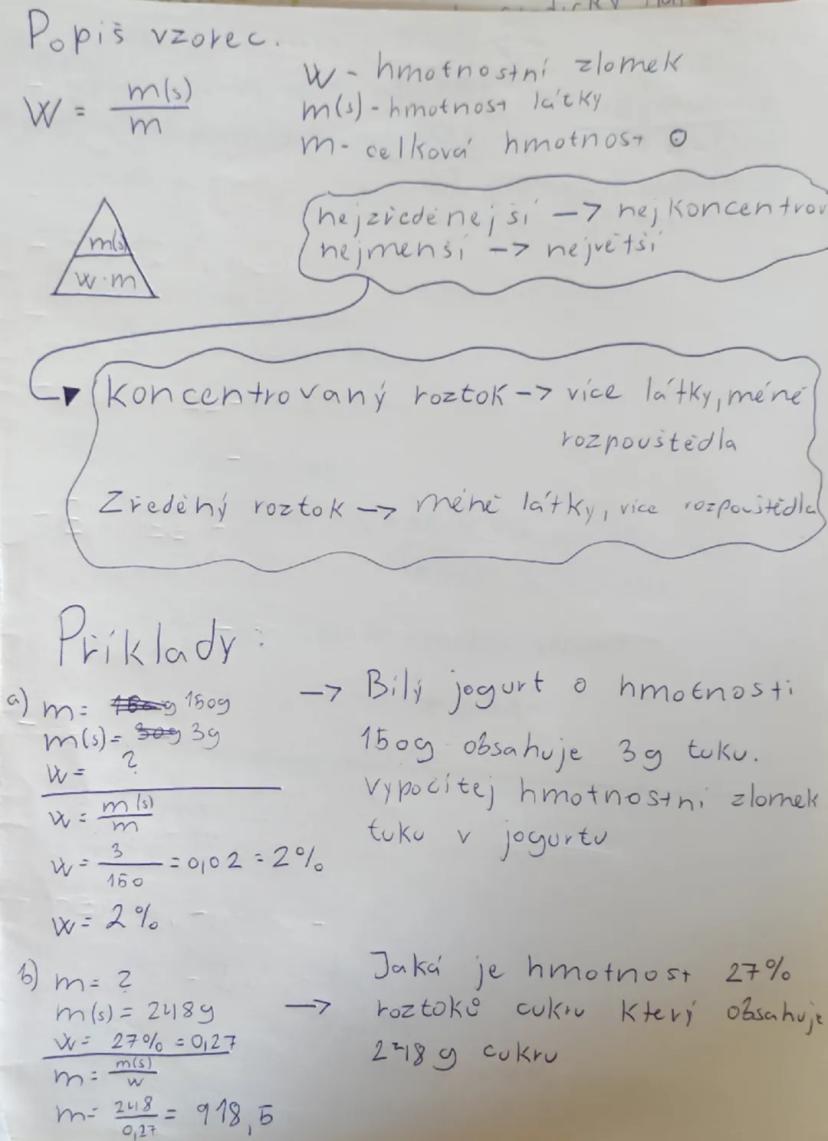 Popiš vzorec.
W = m(s)/m
W - hmotnostní zlomek
m(s) - hmotnost látky
m - celková hmotnost
m(s)
w·m
nejzředěnejší -> nejkoncentrov
nejmenší -> největší
Koncentrovaný roztok -> více látky, méně
rozpouštědla
Zředěný roztok -> méně látky, více rozpouštědla
Příklady:
a) m = 150g
m(s) = 3g
w = ?
w = m(s)/m
w = 3/150 = 0,02 = 2%
w = 2%
-> Bílý jogurt o hmotnosti
150g obsahuje 3g tuku.
Vypočítej hmotnostní zlomek
tuku v jogurtu
b) m = ?
m(s) = 248g
w = 27% = 0,27
m = m(s)/w
m = 248/0,27 = 918,5
-> Jaká je hmotnost 27%
roztoků cukru který obsahuje
248 g cukru